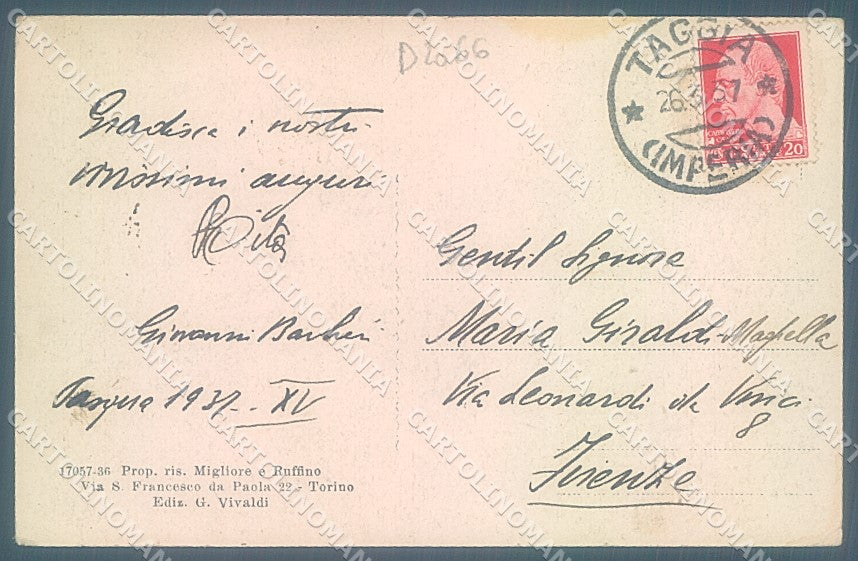 D2066
TAGGIA
26.3.37
(IMPERIA)
20
Gradisca i nostri
vivissimi auguri
Rita
Giovanni Barberi
Pasqua 1937 - XV
Gentil Signora
Maria Giraldi
Via Leonardo da Vinci
8
Firenze
17057-36 Prop. ris. Migliore e Ruffino
Via S. Francesco da Paola 22 - Torino
Ediz. G. Vivaldi
CARTOLINOMANIA